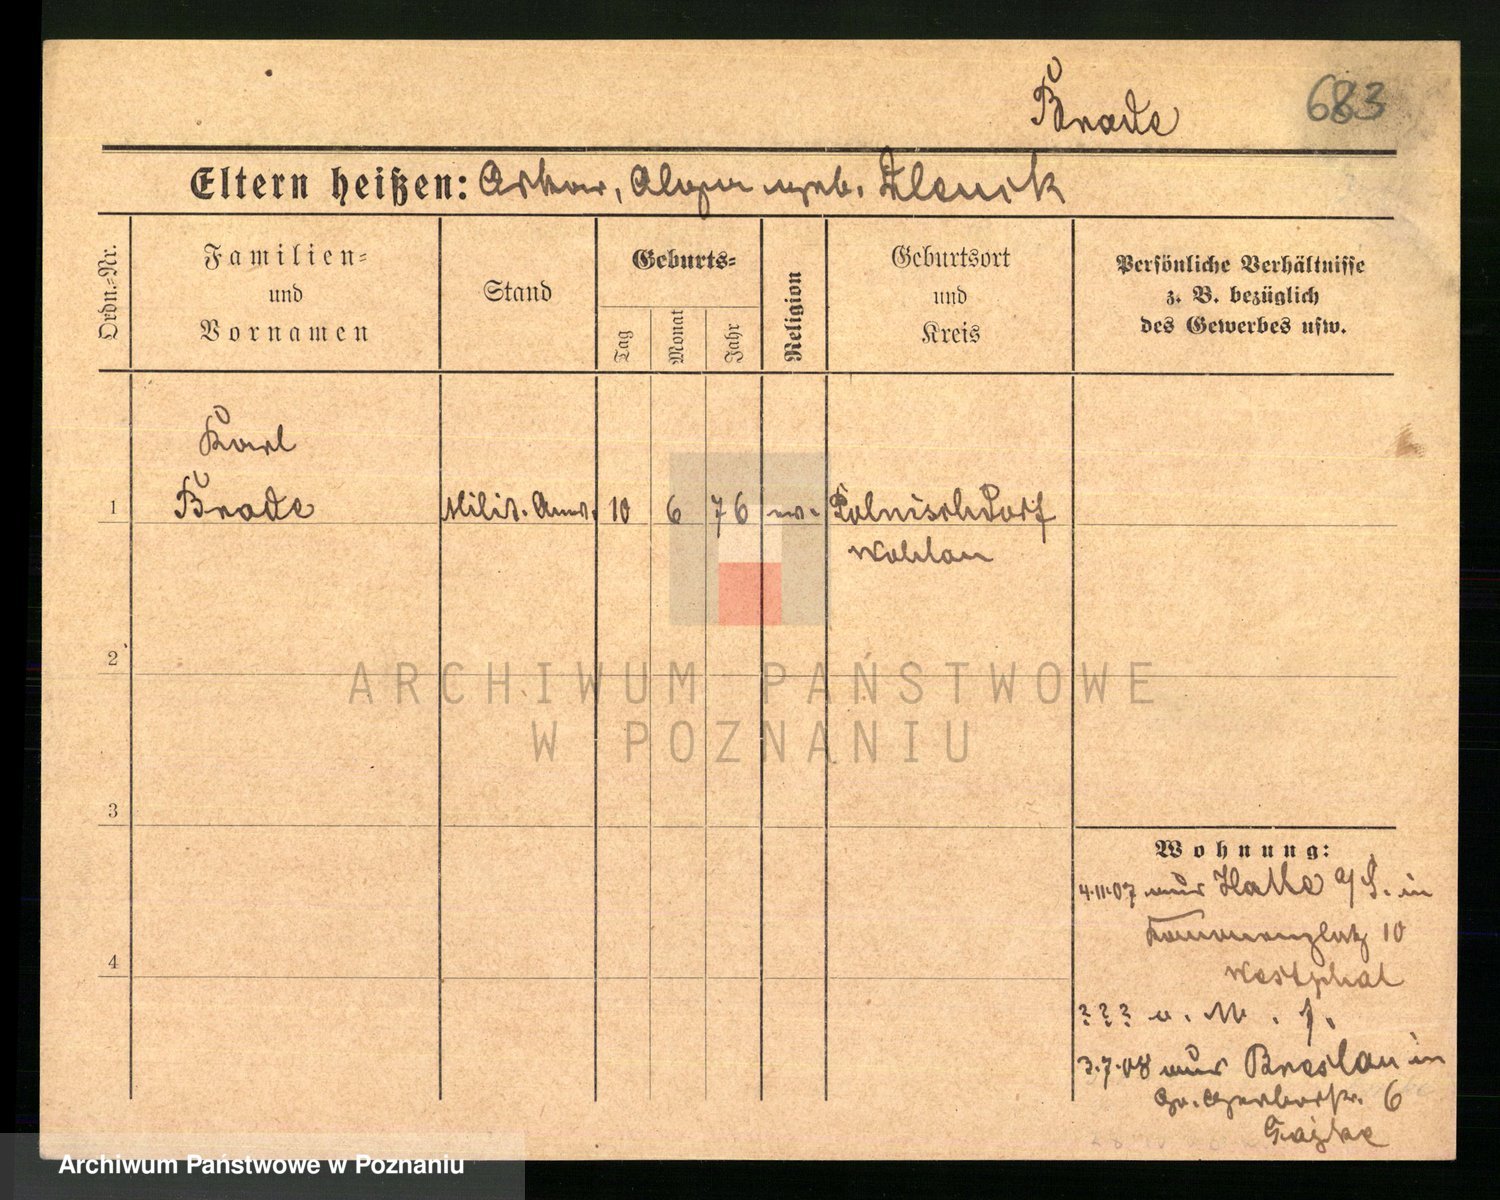 683
Brade
Eltern heißen: Oskar, geb.
Ordn.-Nr.
Familien=
und
Vornamen
Stand
Geburts=
Tag
Monat
Jahr
Religion
Geburtsort
und
Kreis
Persönliche Verhältnisse
z. B. bezüglich
des Gewerbes usw.
Karl
1 Brade Milit. Anw. 10 6 76 ev. Polnischdorf
Wohlau
2
ARCHIWUM PAŃSTWOWE
W POZNANIU
3
Wohnung:
4.11.07 aus Halle a/S. in
10
Westphal
4
? ? ? u. M.
3.7.08 aus Breslau in
Gr. Gerberstr. 6
Archiwum Państwowe w Poznaniu